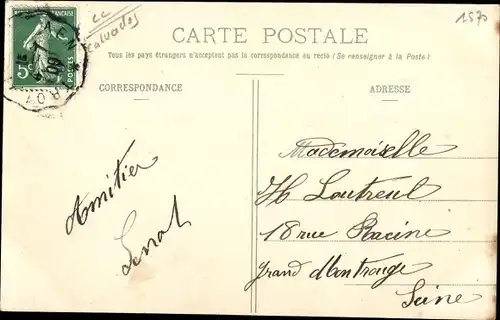 1570
cc
Calvados
5c
CARTE POSTALE
Tous les pays étrangers n'acceptent pas la correspondance au recto (Se renseigner à la Poste)
CORRESPONDANCE
ADRESSE
Amitier
Mademoiselle
H Loutreul
18 rue Racine
Grand Montrouge
Seine